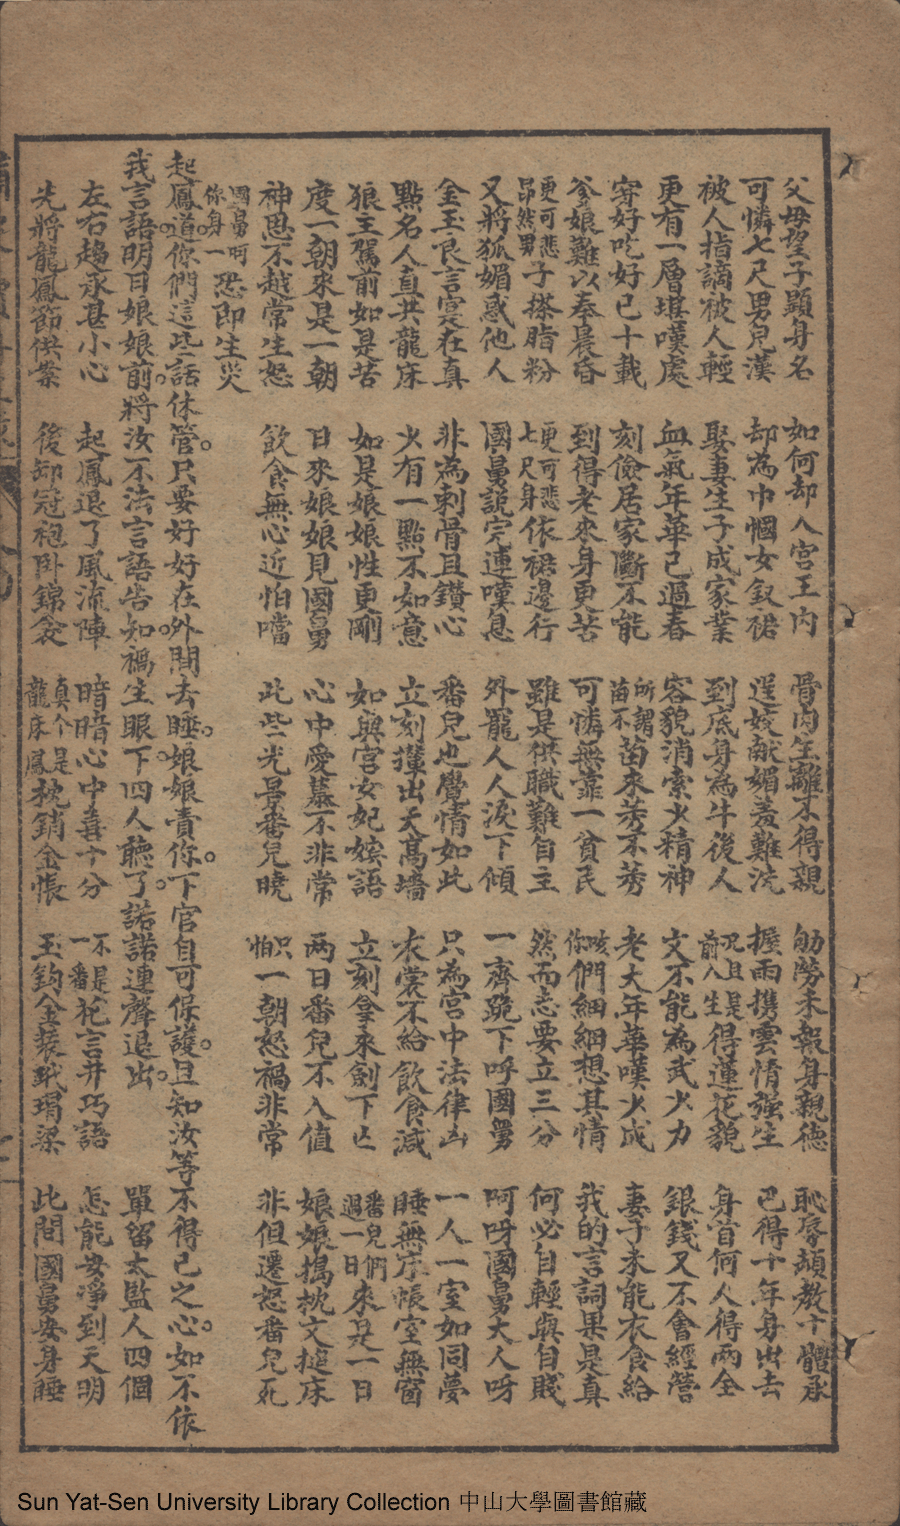 父母望子顯身名 如何却入宮王内 骨肉生離不得親 劬勞未報身親德 恥辱頻教寸體承
可憐七尺男兒漢 却為巾幗女釵裙 逞妓献媚羞難洗 握雨携雲情强生 已得十年身出去
被人指謫被人輕 娶妻生子成家業 到底身為牛後人 况且是前八生得蓮花貌 身首何人得两全
更有一層堪嘆處 血氣年華已過春 容貌消索少精神 文不能為武少力 銀錢又不會經營
穿好吃好已十載 刻儉居家斷不能 所謂苗不苗來莠不莠 老大年華嘆少成 妻子未能衣食給
爹娘難以奉晨昏 到得老來身更苦 可憐無靠一貧民 咳你們細細想其情 我的言詞果是真
更可悲昂然男子搽脂粉 更可悲七尺身依裙邊行 雖是供職難自主 然而志要立三分 何必自輕與自賤
又將狐媚惑他人 國舅説完連嘆息 外罷人人淚下傾 一齊跪下呼國舅 呵呀國舅大人呀
金玉良言寔在真 非為剌骨且鑽心 番兒也覺情如此 只為宮中法律凶 一人一室如同夢
點名人直共龍床 少有一點不如意 立刻攆出天髙墻 衣裳不給飲食減 睡無床帳室無窗
狼主駕前如是苦 如是娘娘性更剛 如與宮女妃嬪語 立刻拿來劍下亡 番兒們過一日來是一日
度一朝來是一朝 日來娘娘見國舅 心中愛慕不非常 两日番兒不入值 娘娘搗枕文搥床
神思不越常生怒 飲食無心近怕噹 此些光景番兒曉 只怕一朝怒禍非常 非但遷怒番兒死
國舅呵你身一恐即生災
起鳳道。你們這些話休管。只要好好在外間去睡。娘娘責你。下官自可保護。且知汝等不得已之心。如不依
我言語。明日娘娘前。將汝不法言語告知。禍生眼下。四人聽了。諾諾連聲退出。 單留太監人四個
左右趨承甚小心 起鳳退了風流陣 暗暗心中喜十分 不是一番花言并巧語 怎能安淨到天明
先將龍鳳節供案 後卸冠袍卧錦衾 真个是龍床鳳枕銷金帳 玉鈎金裝玳瑁梁 此間國舅安身睡
Sun Yat-Sen University Library Collection 中山大學圖書館藏